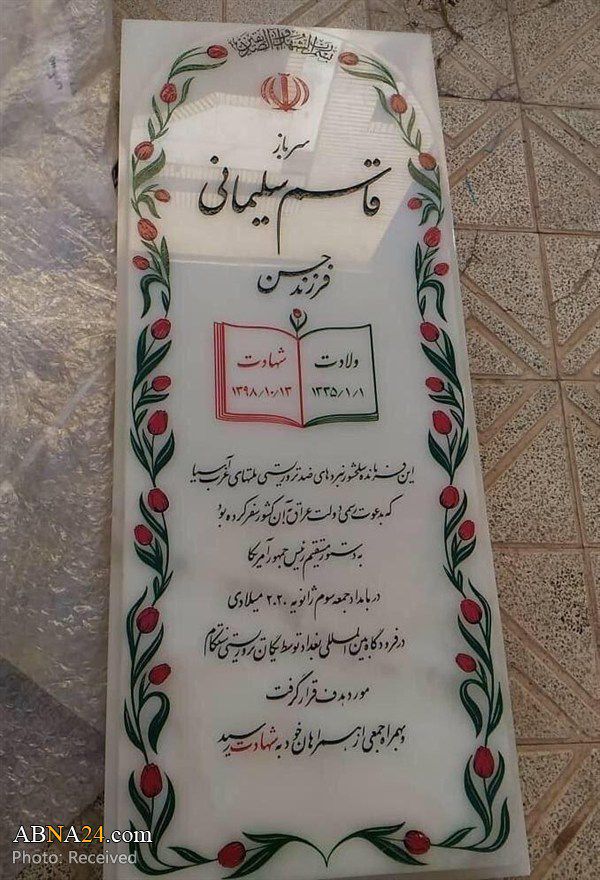 بسم رب الشهداء و الصدیقین
سرباز
قاسم سلیمانی
فرزند حسن
ولادت
۱۳۳۵/۱/۱
شهادت
۱۳۹۸/۱۰/۱۳
این فرمانده سلحشور نبردهای ضد تروریستی ملتهای غرب آسیا
که به دعوت رسمی دولت عراق به آن کشور سفر کرده بود
به دستور مستقیم رئیس جمهور آمریکا
در بامداد جمعه سوم ژانویه ۲۰۲۰ میلادی
در فرودگاه بین المللی بغداد توسط یگان تروریستی سنتکام
مورد هدف قرار گرفت
و بهمراه جمعی از همراهان خود به شهادت رسید
ABNA24.com
Photo: Received